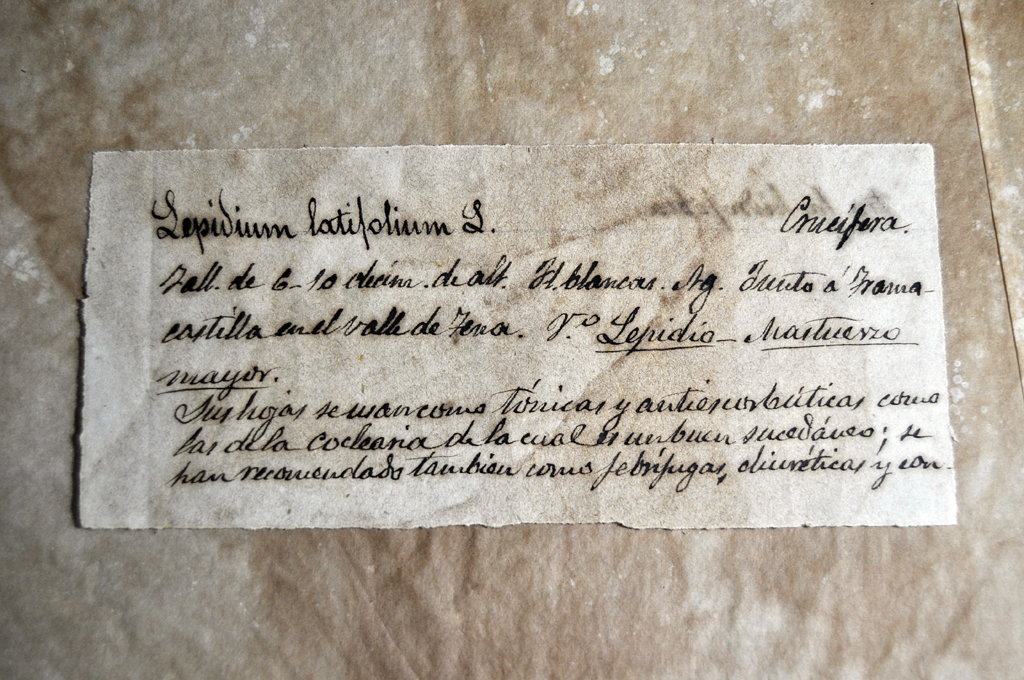 Lepidium latifolium L. Crucifera.
Tall. de 6-10 decim. de alt. Fl. blancas. Ag. Junto á Trama-
castilla en el valle de Tena. V.º Lepidio - Mastuerzo
mayor.
Sus hojas se usan como tónicas y antiescorbúticas como
las de la coclearia de la cual es un buen sucedáneo; se
han recomendado tambien como febrífugas, diuréticas y con-